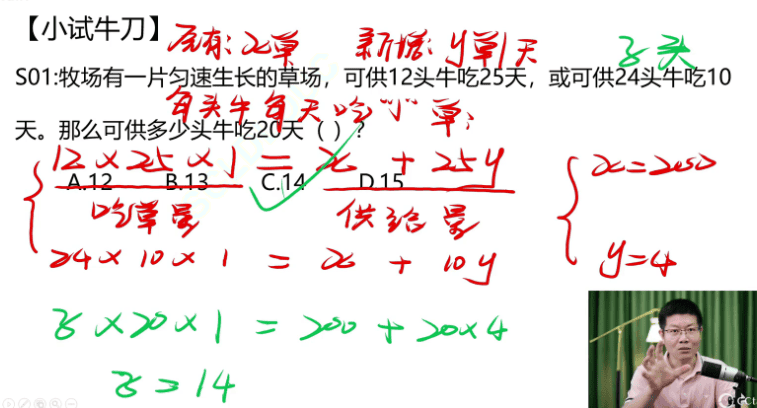 【小试牛刀】
原有:x草 新增:y草/天 z头
S01:牧场有一片匀速生长的草场，可供12头牛吃25天，或可供24头牛吃10
每头牛每天吃"1"草;
天。那么可供多少头牛吃20天（ ）？
12×25×1 = x + 25y x=200
A.12 B.13 C.14 D.15
吃草量 供给量
24×10×1 = x + 10y y=4
z×20×1 = 200 + 20×4
z=14